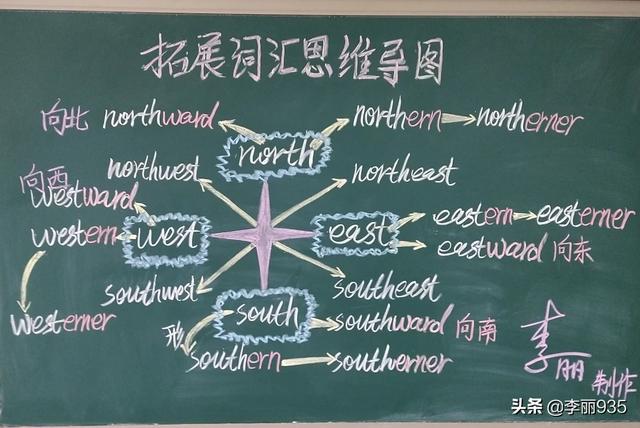 拓展词汇思维导图
向北 northward
northern
northerner
north
northwest
northeast
向西
westward
western
west
westerner
east
eastern
easterner
eastward 向东
southwest
southeast
south
southward 向南
形
southern
southerner
李丽
制作
头条 @李丽935